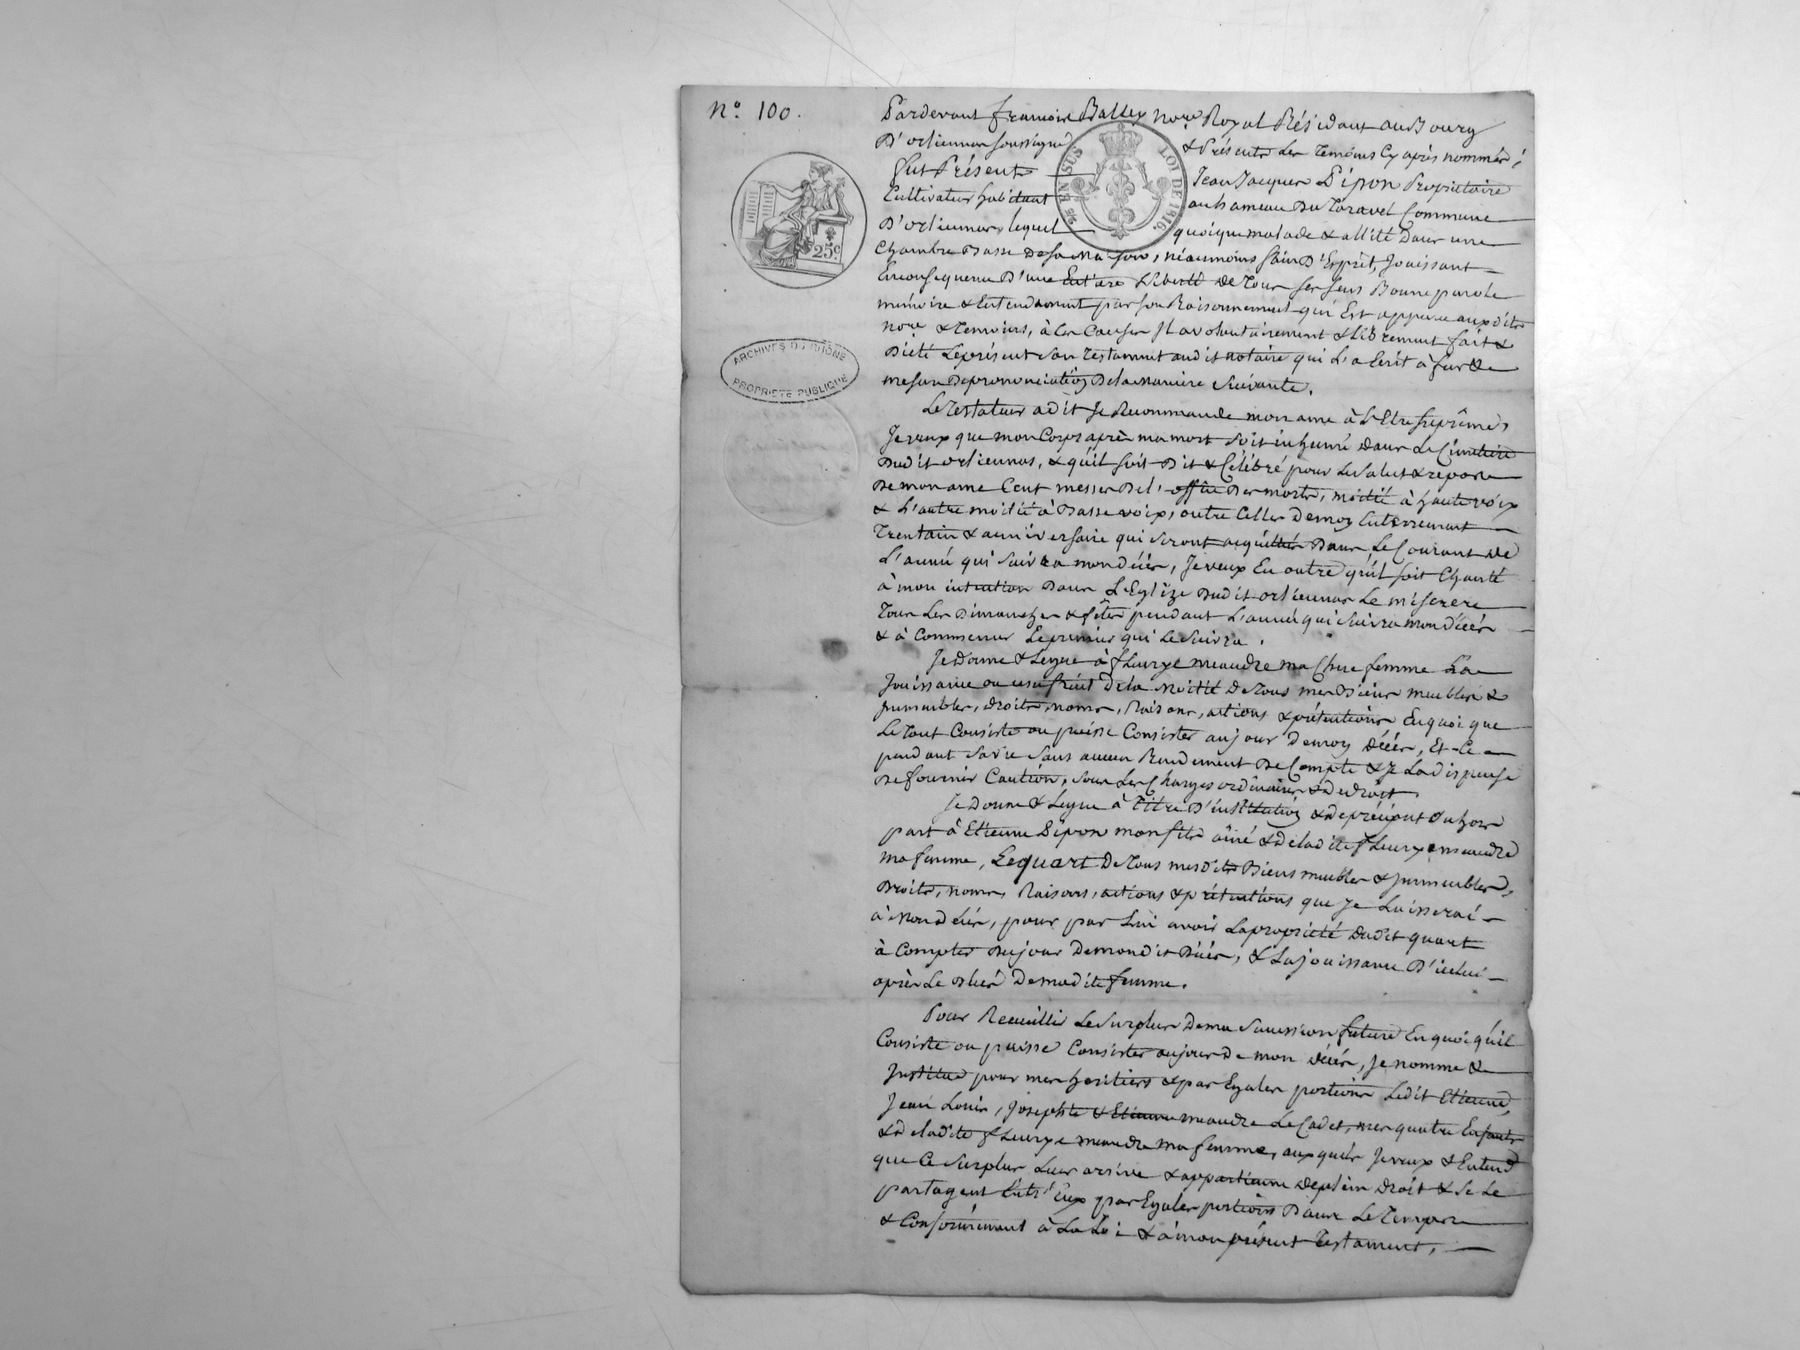 N.º 100.
Pardevant francois Balley no.re Royal Résidant au Bourg
D'orlienas soussigné & Présents les temoins cy après nommés,
fut Présent Jean Jacques Pipon Propriétaire
Cultivateur habitant au hameau Du Taravel Commune
D'orlienas, lequel quoique malade & allité Dans une
Chambre Basse De sa Maison, néanmoins sain D'Esprit, Jouissant
En consequence D'une Entiere Liberté De Tous ses sens Bonne parole
mémoire & Entendement par son Raisonnement qui Est apparu auxdits
no.re & temoins, à Ces Causes Il a volontairement & librement fait &
Dicté Le présent son Testament audit notaire qui L'a Ecrit à fur &
mesure De prononciation De la maniere Suivante.
Le Testateur a dit Je Recommande mon ame à L'Etre suprême,
Je veux que mon Corps après ma mort soit inhumé Dans Le Cimetiere
Dudit orlienas, & qu'il soit Dit & Célébré pour Le salut & repos
De mon ame Cent messes De l'office Des morts, moitié à haute voix
& L'autre moitié à Basse voix, outre Celles De mon Enterrement
Trentain & anniversaire qui seront acquittés Dans Le Courant De
L'année qui Suivra mon décès, Je veux En outre qu'il soit Chanté
à mon intention Dans L'Eglize Dudit orlienas Le miserere
Tous Les Dimanches & fêtes pendant L'année qui Suivra mon décès
& à Commencer Le premier qui Le Suivra.
Je Donne & Legue à fleurye meaudre ma Chere femme La
Jouissance ou usufruit De la Moitié De Tous mes Biens meubles &
Immeubles, droits, noms, Raisons, actions & prétentions En quoi que
Le Tout Consiste ou puisse Consister au jour De mon décès, Et Ce
pendant Sa vie Sans aucun Rendement De Compte & Je La dispense
De fournir Caution, Sous Les Charges ordinaires & De droit.
Je Donne & Legue à Titre D'institution & De préciput & hors
part à Etienne Pipon mon fils ainé & De ladite fleurye meaudre
Ma femme, Le quart De Tous mesdits Biens meubles & Immeubles,
Droits, noms, Raisons, actions & prétentions que Je Laisserai
à Mon decès, pour par Lui avoir La propriété Dudit quart
à Compter Du jour De mondit Décès, & La jouissance D'icelui
après Le decès De madite femme.
Pour Recueillir Le Surplus De ma Succession future En quoi qu'il
Consiste ou puisse Consister au jour De mon décès, Je nomme &
Institue pour mes heritiers & par Egales portions Ledit Etienne,
Jean Louis, Josephte & Etienne meaudre Le Cadet, mes quatre Enfants
& De ladite fleurye meaudre Ma femme, auxquels Je veux & Entend
que Ce Surplus Leur arrive & appartienne De plein Droit & Se Le
partagent Entr'Eux par Egales portions Dans Le Temps
& Conformément à La Loi & à mon présent Testament.
25.c
25 EN SUS
LOI DE 1816.
ARCHIVES DU RHÔNE
PROPRIÉTÉ PUBLIQUE